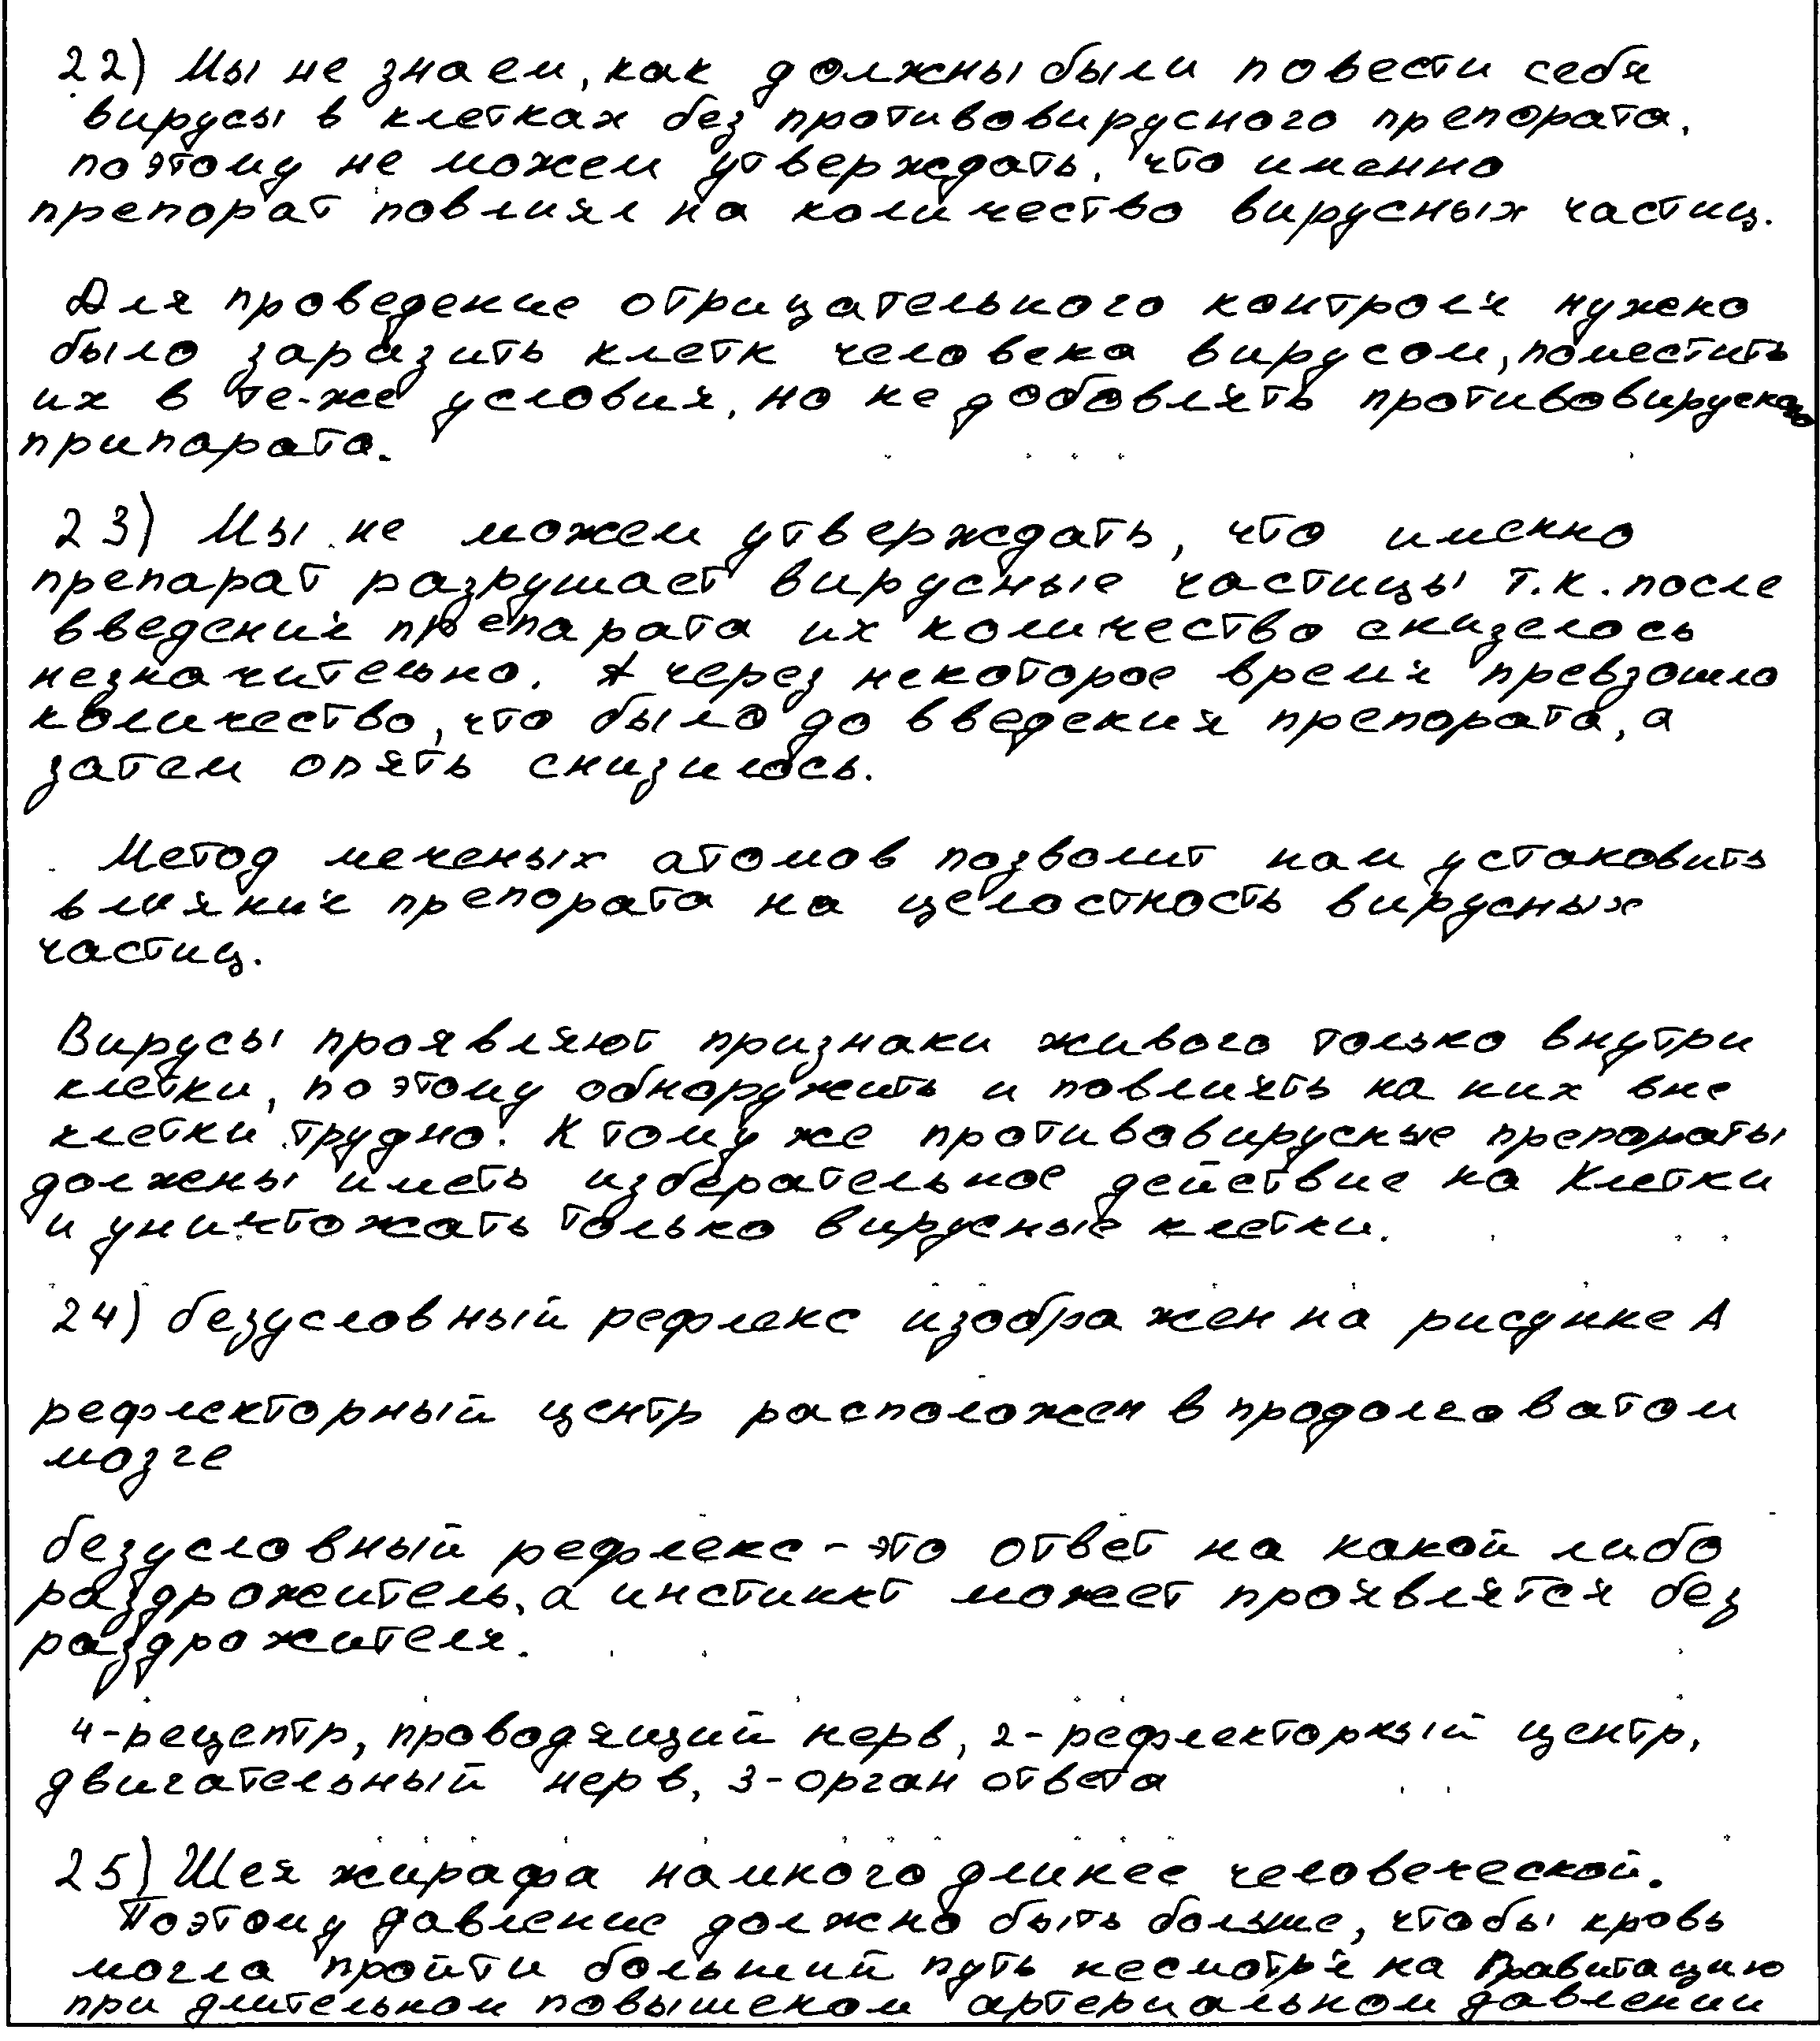 22) Мы не знаем, как должны были повести себя
вирусы в клетках без противовирусного препората,
поэтому не можем утверждать, что именно
препорат повлиял на количество вирусных частиц.
Для проведение отрицательного контроля нужно
было заразить клетк человека вирусом, поместить
их в те-же условия, но не добовлять противовирусного
припарата.
23) Мы не можем утверждать, что именно
препарат разрушает вирусные частицы т.к. после
введения препарата их количество снизелось
незначительно. А через некоторое время превзошло
количество, что было до введения препората, а
затем опять снизилось.
Метод меченых атомов позволит нам установить
влияние препората на целостность вирусных
частиц.
Вирусы проявляют признаки живого только внутри
клетки, поэтому обноружить и повлиять на них вне
клетки трудно. К тому же противовирусные препораты
должены иметь изберательное действие на клетки
и уничтожать только вирусные клетки.
24) безусловный рефлекс изображен на рисунке А
рефлекторный центр расположен в продолговатом
мозге
безусловный рефлекс - это ответ на какой либо
раздрожитель, а инстинкт может проявлятся без
раздрожителя.
4-рецептр, проводящий нерв, 2-рефлекторный центр,
двигательный нерв, 3-орган ответа
25) Шея жирафа намного длинее человеческой.
Поэтому давление должно быть больше, чтобы кровь
могла пройти больший путь несмотря на гравитацию
при длительном повышеном артериальном давлении